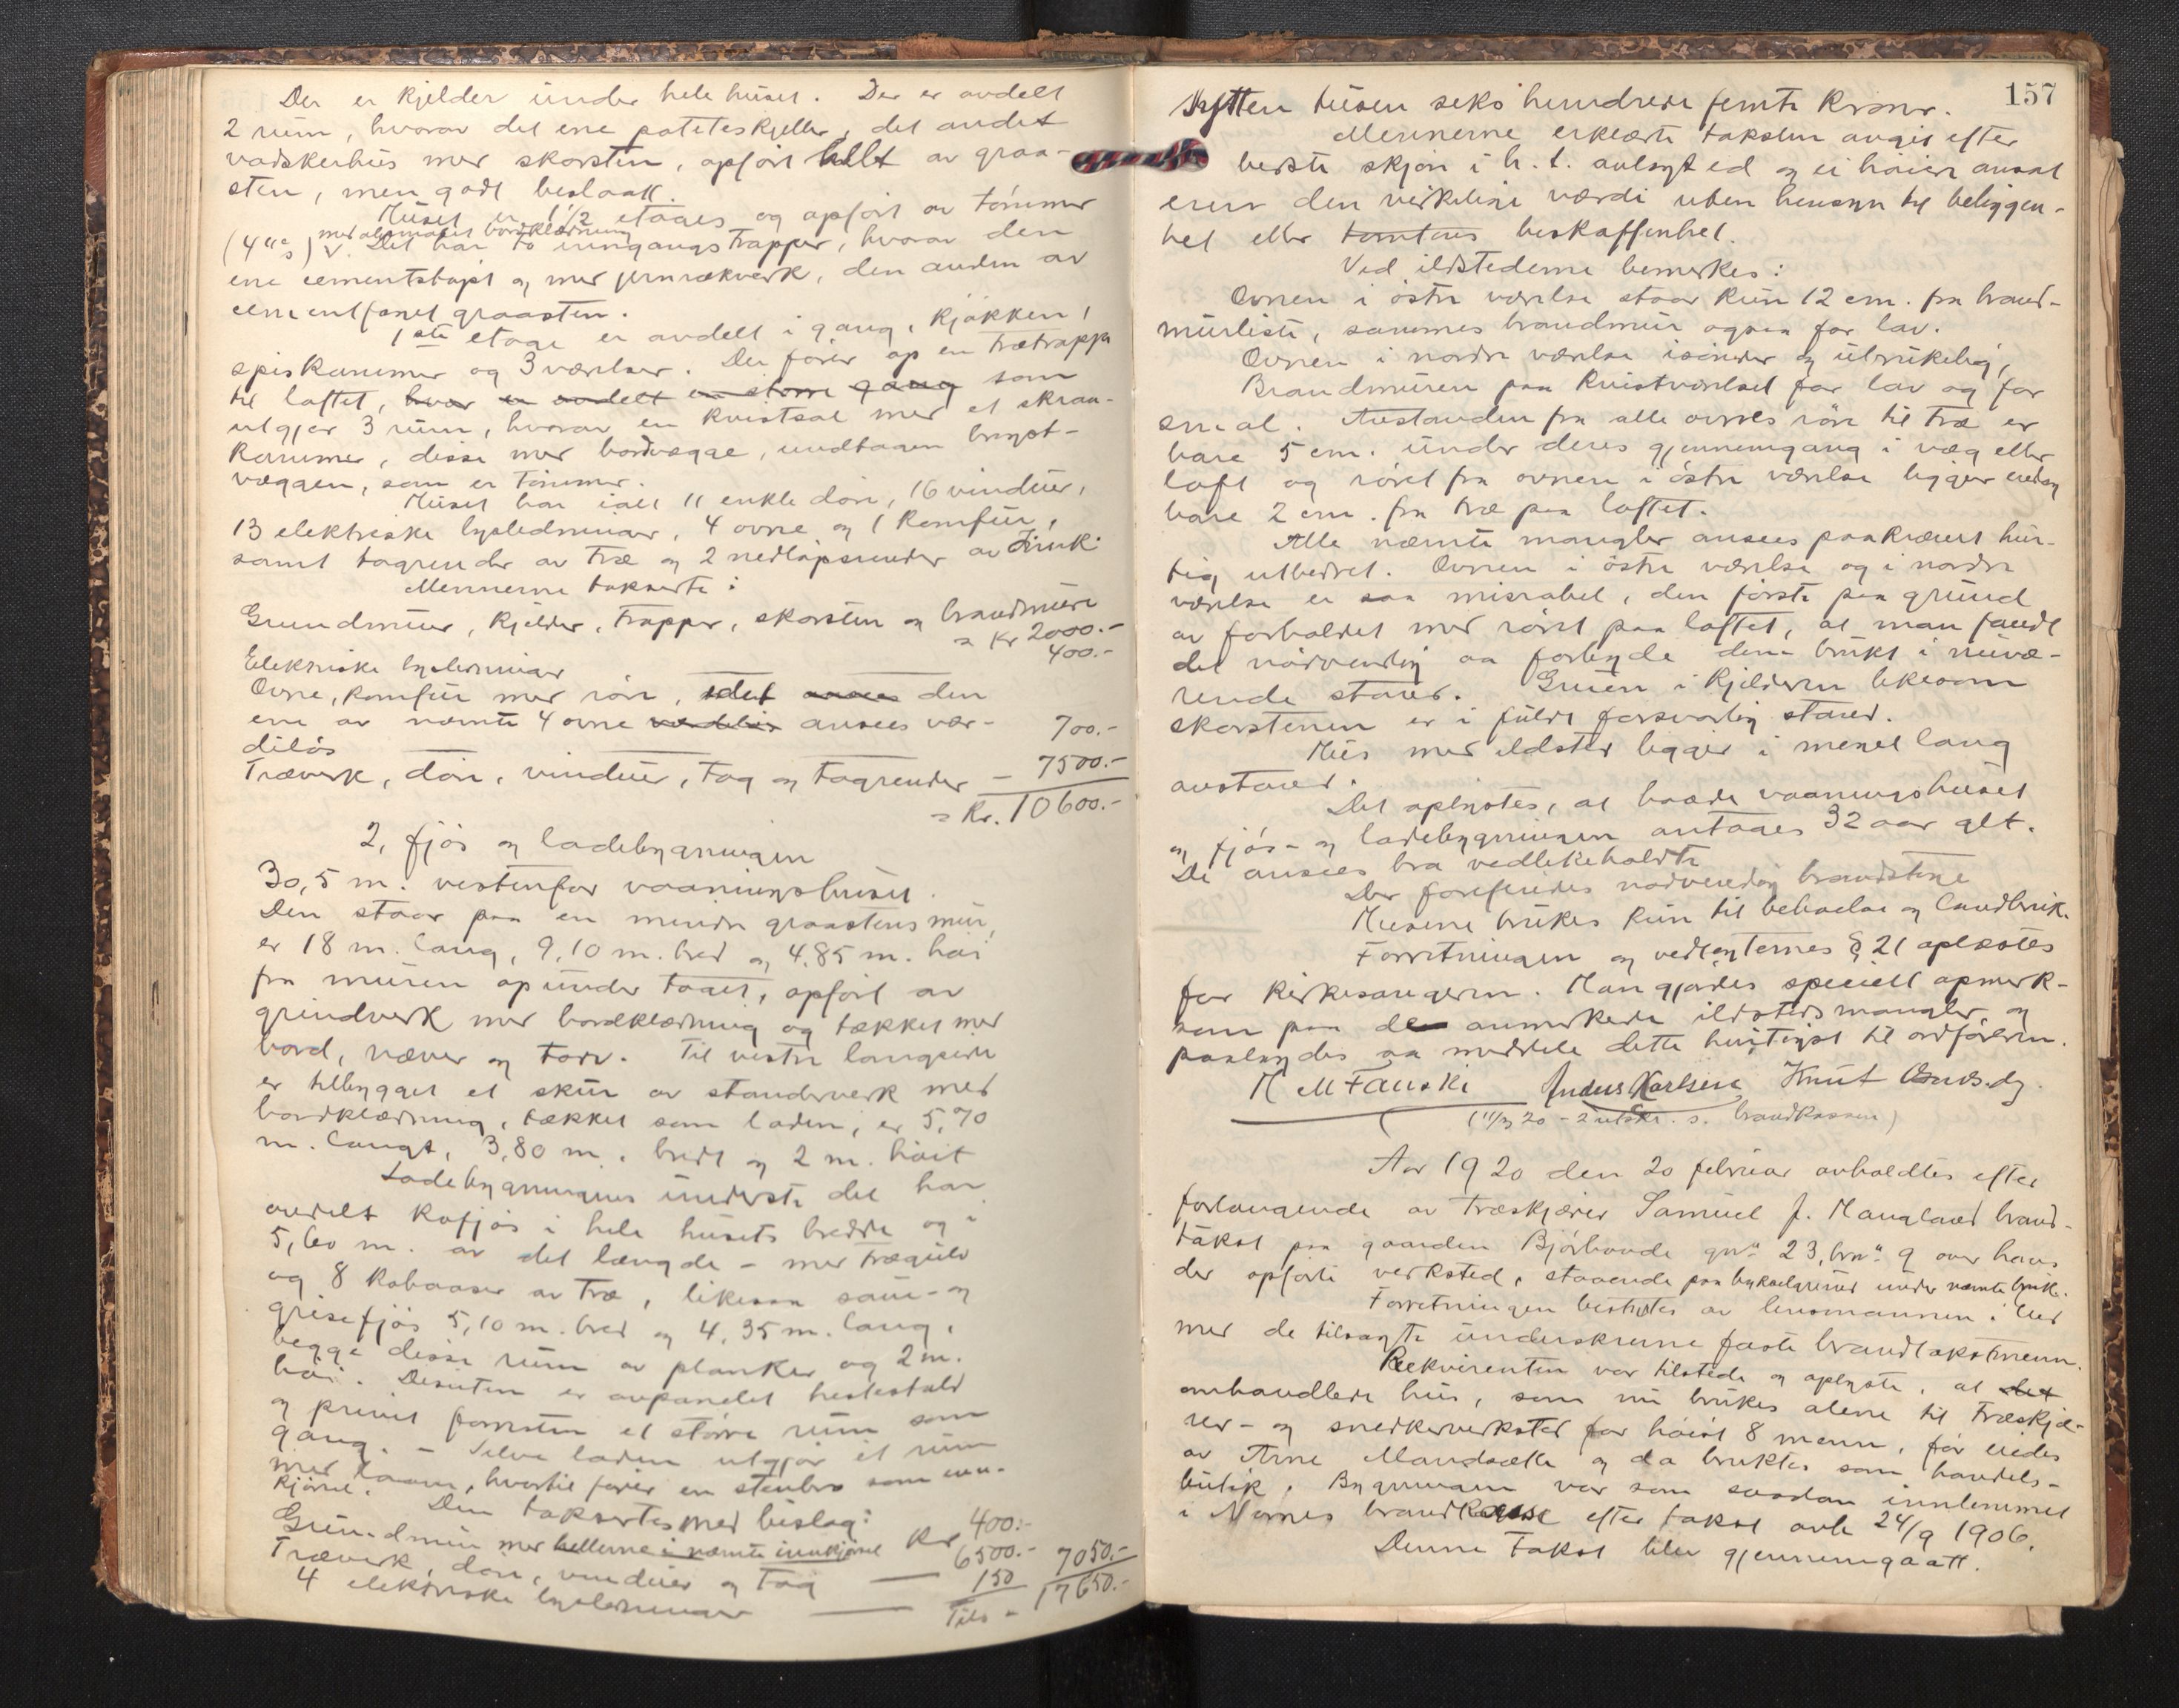 Der er kjelder under hele huset. Der er avdelt
2 rum, hvorav det ene poteteskjeller, det andet
vadskerhus med skorsten, opført helt av graa-
sten, men godt beslaatt.
Huset er 1 1/2 etages og opført av tømmer
med almindel bordklædning
(4"s) v. Det har to inngangstrapper, hvorav den
ene cementstøpt og med jernrækverk, den anden av
cementfuget graasten.
1ste etage er avdelt i gang, kjøkken,
spiskammer og 3 værelser. Der fører op en trætrappe
til loftet, hvor er avdelt en større gang som
utgjør 3 rum, hvorav en kvistsal med et skraa-
kammer, disse med bordvægge, undtagen bryst-
væggen, som er tømmer.
Huset har ialt 11 enkle døre, 16 vinduer,
13 elektriske lysledninger, 4 ovne og 1 komfur,
samt tagrender av træ og 2 nedløpsrender av sink.
Mennerne takserte:
Grundmur, kjelder, trapper, skorsten og brandmure
= Kr 2000.-
Elektriske lysledninger 400.-
Ovne, komfur med rør, idet ansees den
ene av nævnte 4 ovne værdiløs ansees vær-
diløs 700.-
Træverk, døre, vinduer, tag og tagrender - 7500.-
= Kr. 10600.-
2, fjøs og ladebygningen
30,5 m. vestenfor vaaningshuset.
Den staar paa en mindre graastensmur,
er 18 m. lang, 9,10 m. bred og 4,85 m. høi
fra muren op under taget, opført av
grindverk med bordklædning og tækket med
bord, næver og torv. Til vestre langside
er tilbygget et skur av standerverk med
bordklædning, tækket som laden, er 5,70
m. langt, 3,80 m. bredt og 2 m. høit
Ladebygningens underste del har
avdelt kufjøs i hele husets bredde og i
5,60 m. av det længde - med trægulv
og 8 kobaaser av træ, likesaa saue- og
grisefjøs 5,10 m. bred og 4,35 m. lang,
begge disse rum av planker og 2 m.
høi. Desuten er avpanelet hestestald
og privet foruten et større rum som
gang. - Selve laden utgjør et rum
med laave, hvortil fører en stenbro som inn-
kjørsel.
Den takseredes med beslag:
Grundmur med hellerne i nævnte innkjørsel Kr 400.-
Træverk, døre, vinduer og tag 6500.-
4 elektriske lysledninger 150 7050.-
Tils = 17650.-
157
Sytten tusen seks hundrede femti Kroner.
Mennerne erklærte taksten avgit efter
bedste skjøn i h. t. avlagt ed og ei høiere ansat
enn den virkelige værdi uten hensyn til beliggen-
het eller tomtens beskaffenhet.
Ved ildstederne bemerkes:
Ovnen i østre værelse staar kun 12 cm. fra brand-
murliste, sammes brandmur ogsaa for lav.
Ovnen i nordre værelse isønder og ubrukelig,
Brandmuren paa kvistværelset for lav og for
smal. Avstanden fra alle ovnes rør til træ er
bare 5 cm. under deres gjennemgang i væg eller
loft og røret fra ovnen i østre værelse ligger endog
bare 2 cm. fra træ paa loftet.
Alle nævnte mangler ansees paakrævet hur-
tig utbedret. Ovnen i østre værelse og i nordre
værelse er saa misrabel, den første paa grund
av forholdet med røret paa loftet, at man fandt
det nødvendig aa forbyde dem brukt i nuvæ-
rende stand. Gruen i kjelderen likesom
skorstenen er i fuldt forsvarlig stand.
Hus med ildsted ligger i meget lang
avstand.
Det oplystes, at baade vaaningshuset
og fjøs- og ladebygningen antages 32 aar glt.
De ansees bra vedlikeholdte
Der forefindes nødvendig brandstige
Husene brukes kun til beboelse og landbruk.
Forretningen og vedtægternes § 21 oplæstes
for kirkesangeren. Han gjordes specielt opmerk-
som paa de anmerkede ildstedsmangler og
paalagdes aa meddele dette hurtigst til ordføreren.
H M Fauski Anders Karlsen Knut
(11/3 20 - 2 utskr. s. brandkassen)
Aar 1920 den 20 februar avholdtes efter
forlangende av træskjærer Samuel J. Haugland brand-
takst paa gaarden Bjørhovde gn. 23, brn. 9 over hans
der opførte verksted, staaende paa bykselgrund under nævnte bruk.
Forretningen bestyrtes av lensmannen i Ulvik
med de tilsagte underskrevne faste brandtakstmenn.
Rekvirenten var tilstede og oplyste, at det
omhandlede hus, som nu brukes alene til træskjæ-
rer- og snedkerverksted for høist 8 menn, før eides
av Arne Maudsætte og da bruktes som handels-
butik. Bygningen var som saadan innlemmet
i Norges brandkasse efter takst avh 24/9 1906.
Denne takst blev gjennemgaatt.